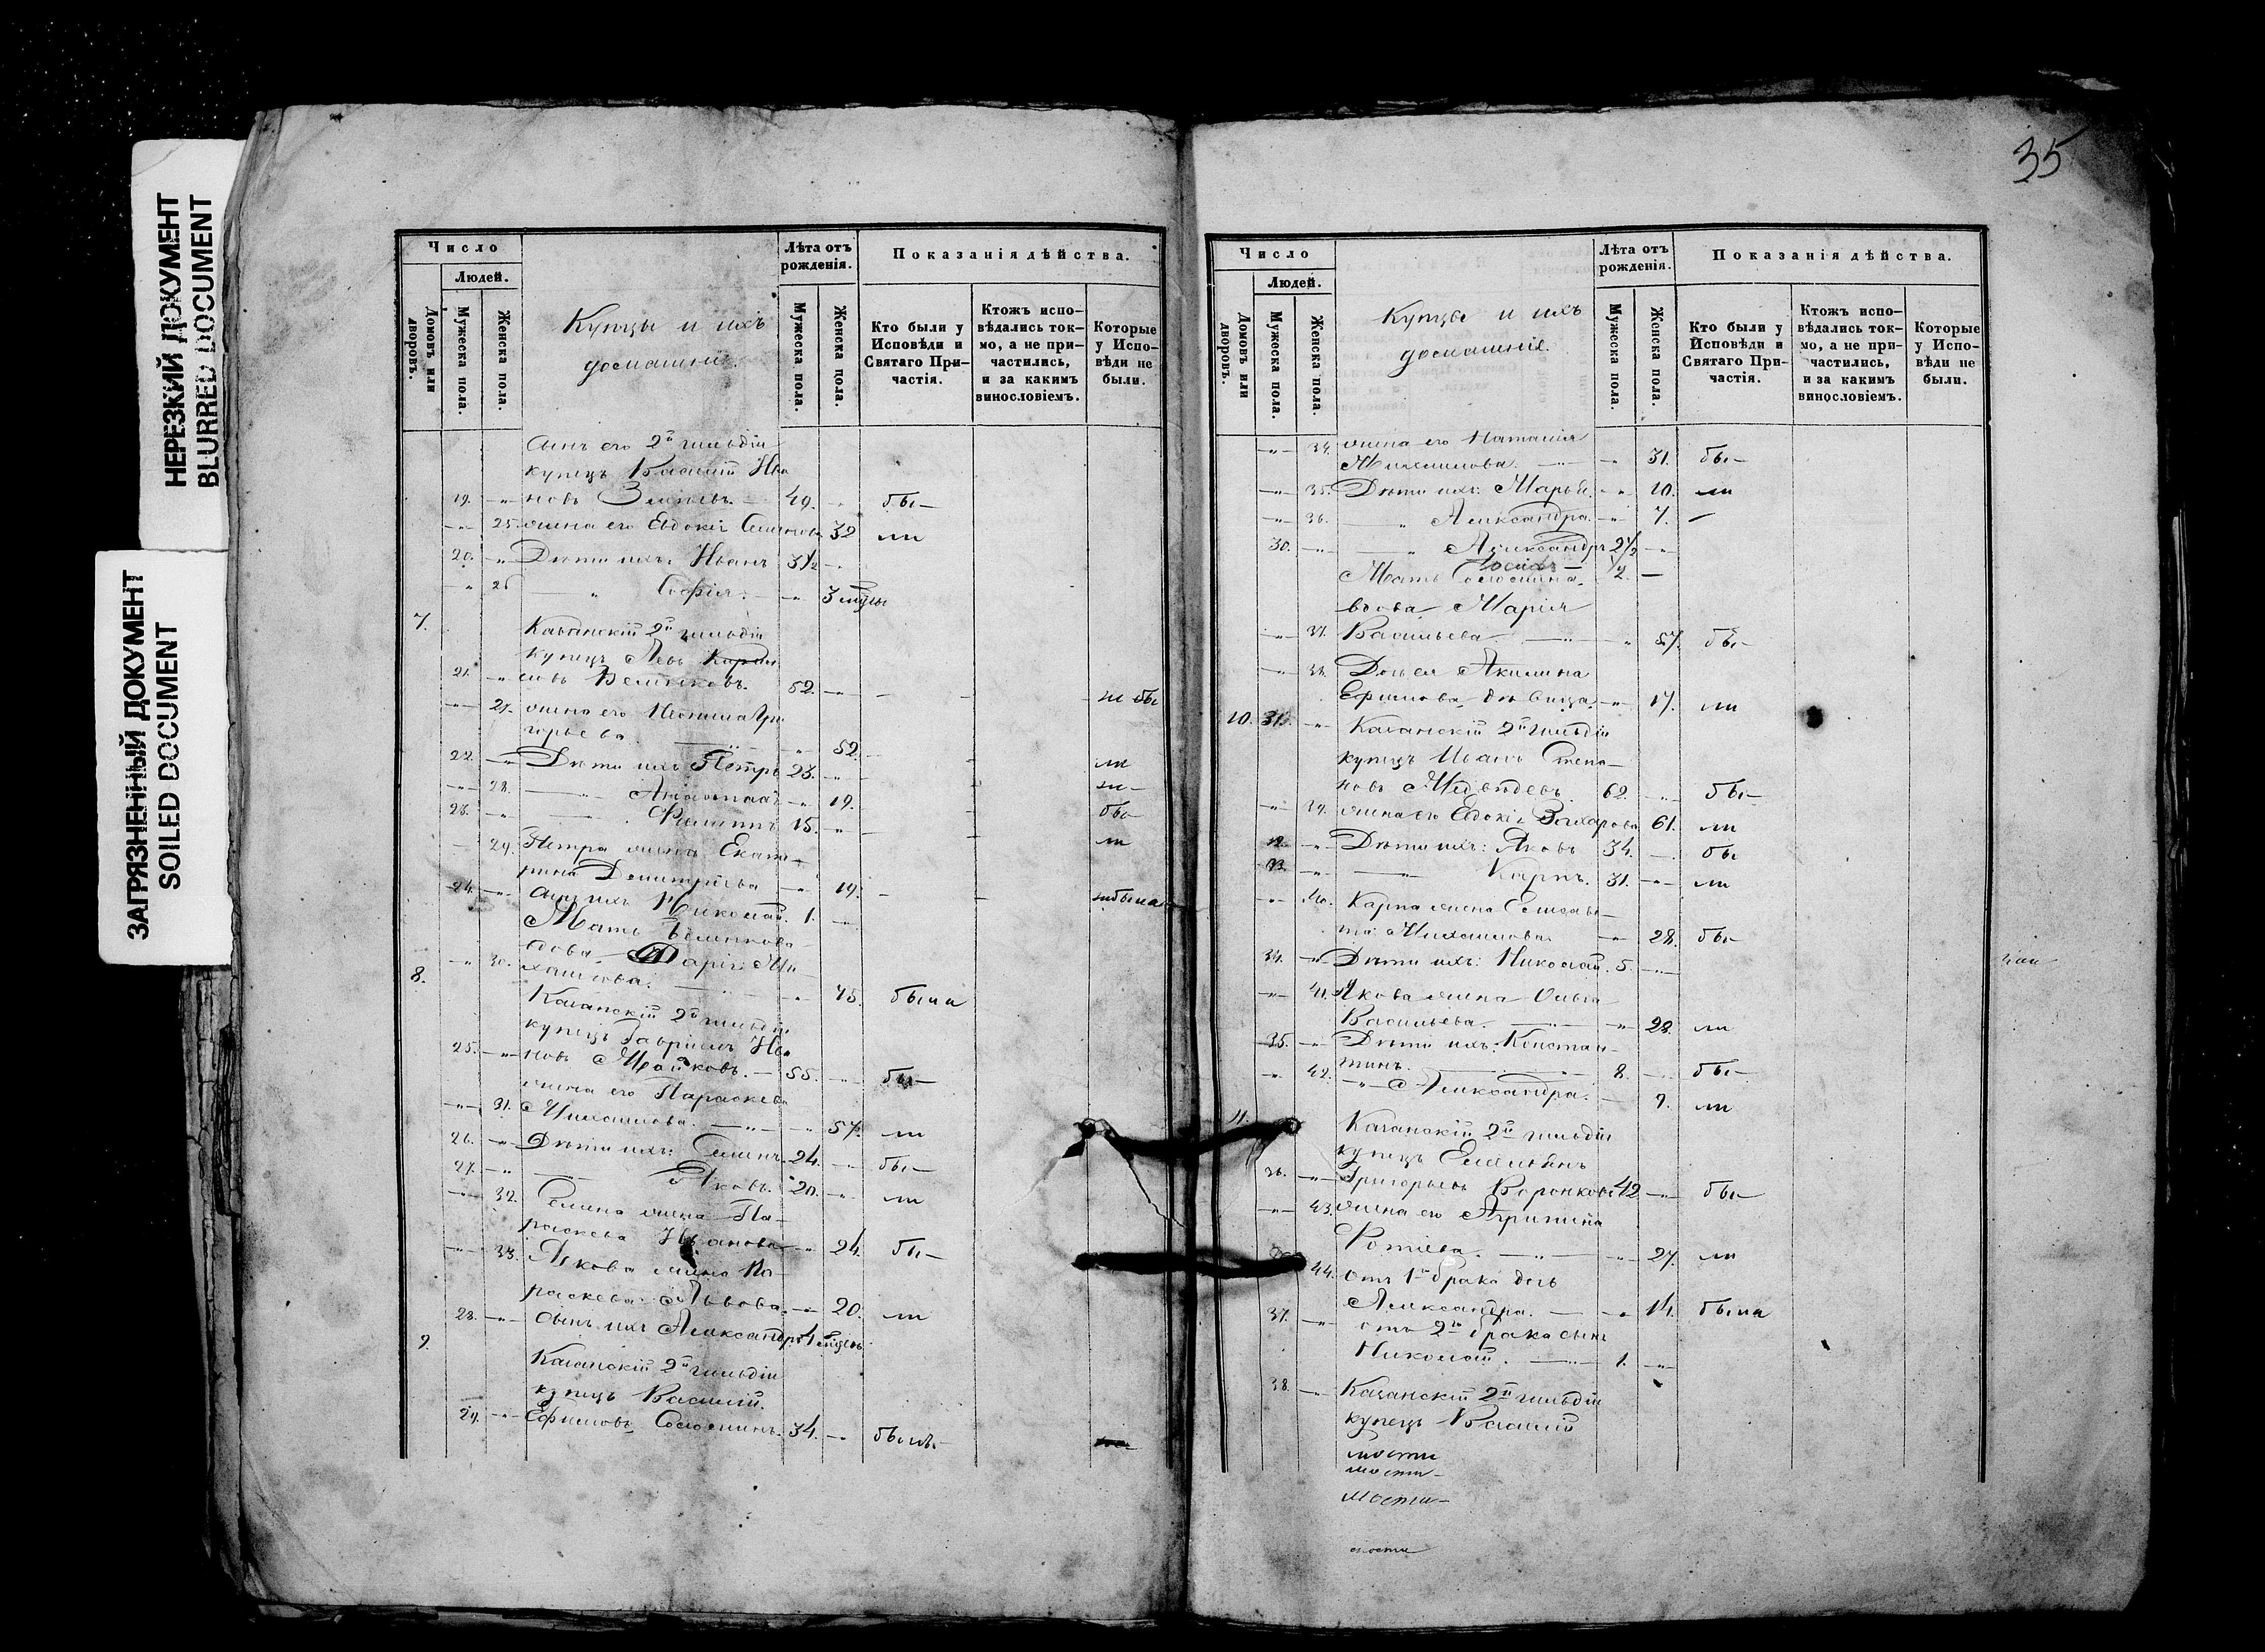 НЕРЕЗКИЙ ДОКУМЕНТ
BLURRED DOCUMENT
ЗАГРЯЗНЕННЫЙ ДОКУМЕНТ
SOILED DOCUMENT
Число
Людей.
Домовъ или дворовъ.
Мужеска пола.
Женска пола.
Купцы и ихъ
домашніе.
Лѣта отъ рожденія.
Мужеска пола.
Женска пола.
Показанія дѣйства.
Кто были у Исповѣди и Святаго При-
частія.
Ктожъ испо-
вѣдались ток-
мо, а не при-
частились,
и за какимъ
винословіемъ.
Которые
у Испо-
вѣди не
были.
Сынъ его 2й гильдіи
купецъ Василій Ива
19. новъ 49. бы-
25. жена его Евдокія Семенова 32 ли
20. Дѣти ихъ: Иванъ 3 1/2
26 Софія 3
7. Казанскій 2й гильдіи
купецъ Левъ
21. 52. не бы
27. жена его Гри
горьева 52. ли
22. Дѣти ихъ Петръ 23. не-
28. 19. бы-
23. Филиппъ 15. ли
29. Петра жена Екате-
рина Димитріева 19. не была
24. сынъ ихъ Николай. 1.
Мать
вдова Марія Ми-
30. хайлова. 75. была
8. Казанскій 2й гильдіи
купецъ Гавріилъ Ива
25. новъ Майковъ. 55. бы-
жена его Параскева
31. Михайлова. 57. ли
26. Дѣти ихъ: Семенъ 24. бы-
27. Яковъ. 20. ли
32. Семена жена Па-
раскева Иванова 24. бы-
33. Якова жена Па-
раскева Львова 20. ли
28. Сынъ ихъ Александръ 1
9. Казанскій 2й гильдіи
купецъ Василій.
29. Ефимовъ Соломинъ. 34. былъ-
35
Число
Людей.
Домовъ или дворовъ.
Мужеска пола.
Женска пола.
Купцы и ихъ
домашніе.
Лѣта отъ рожденія.
Мужеска пола.
Женска пола.
Показанія дѣйства.
Кто были у Исповѣди и Святаго При-
частія.
Ктожъ испо-
вѣдались ток-
мо, а не при-
частились,
и за какимъ
винословіемъ.
Которые
у Испо-
вѣди не
были.
34. жена его Наталія
Михайлова. 31. бы-
35. Дѣти ихъ: Марья. 10. ли
36. Александра. 7.
30. Александръ 2 1/2
1/2
Мать Соломина
вдова Марія
37. Васильева 57. бы-
38. Дочь ея Акилина
Ефимова дѣвица. 17. ли
10. 31. Казанскій 2й гильдіи
купецъ Иванъ Степа-
новъ Медвѣдевъ. 62. бы-
39. жена его Евдокія Захарова 61. ли
32. Дѣти ихъ: Яковъ 34. бы
33. Карпъ. 31. ли
40. Карпа жена Елизаве-
та Михайлова 28. бы-
34. Дѣти ихъ: Николай. 5.
41. Якова жена Ольга
Васильева. 28. ли
35. Дѣти ихъ: Констан-
тинъ. 8. бы-
42. Александра. 7. ли
11. Казанскій 2й гильдіи
купецъ Емельянъ
36. Григорьевъ Воронковъ 42 бы-
43. жена его Агрипина
Фотіева. 27. ли
44. Отъ 1го брака дочь
Александра. 14. была
37. отъ 2го брака сынъ
Николай. 1.
38. Казанскій 2й гильдіи
купецъ Василій
мости
мости-
мости-
мости